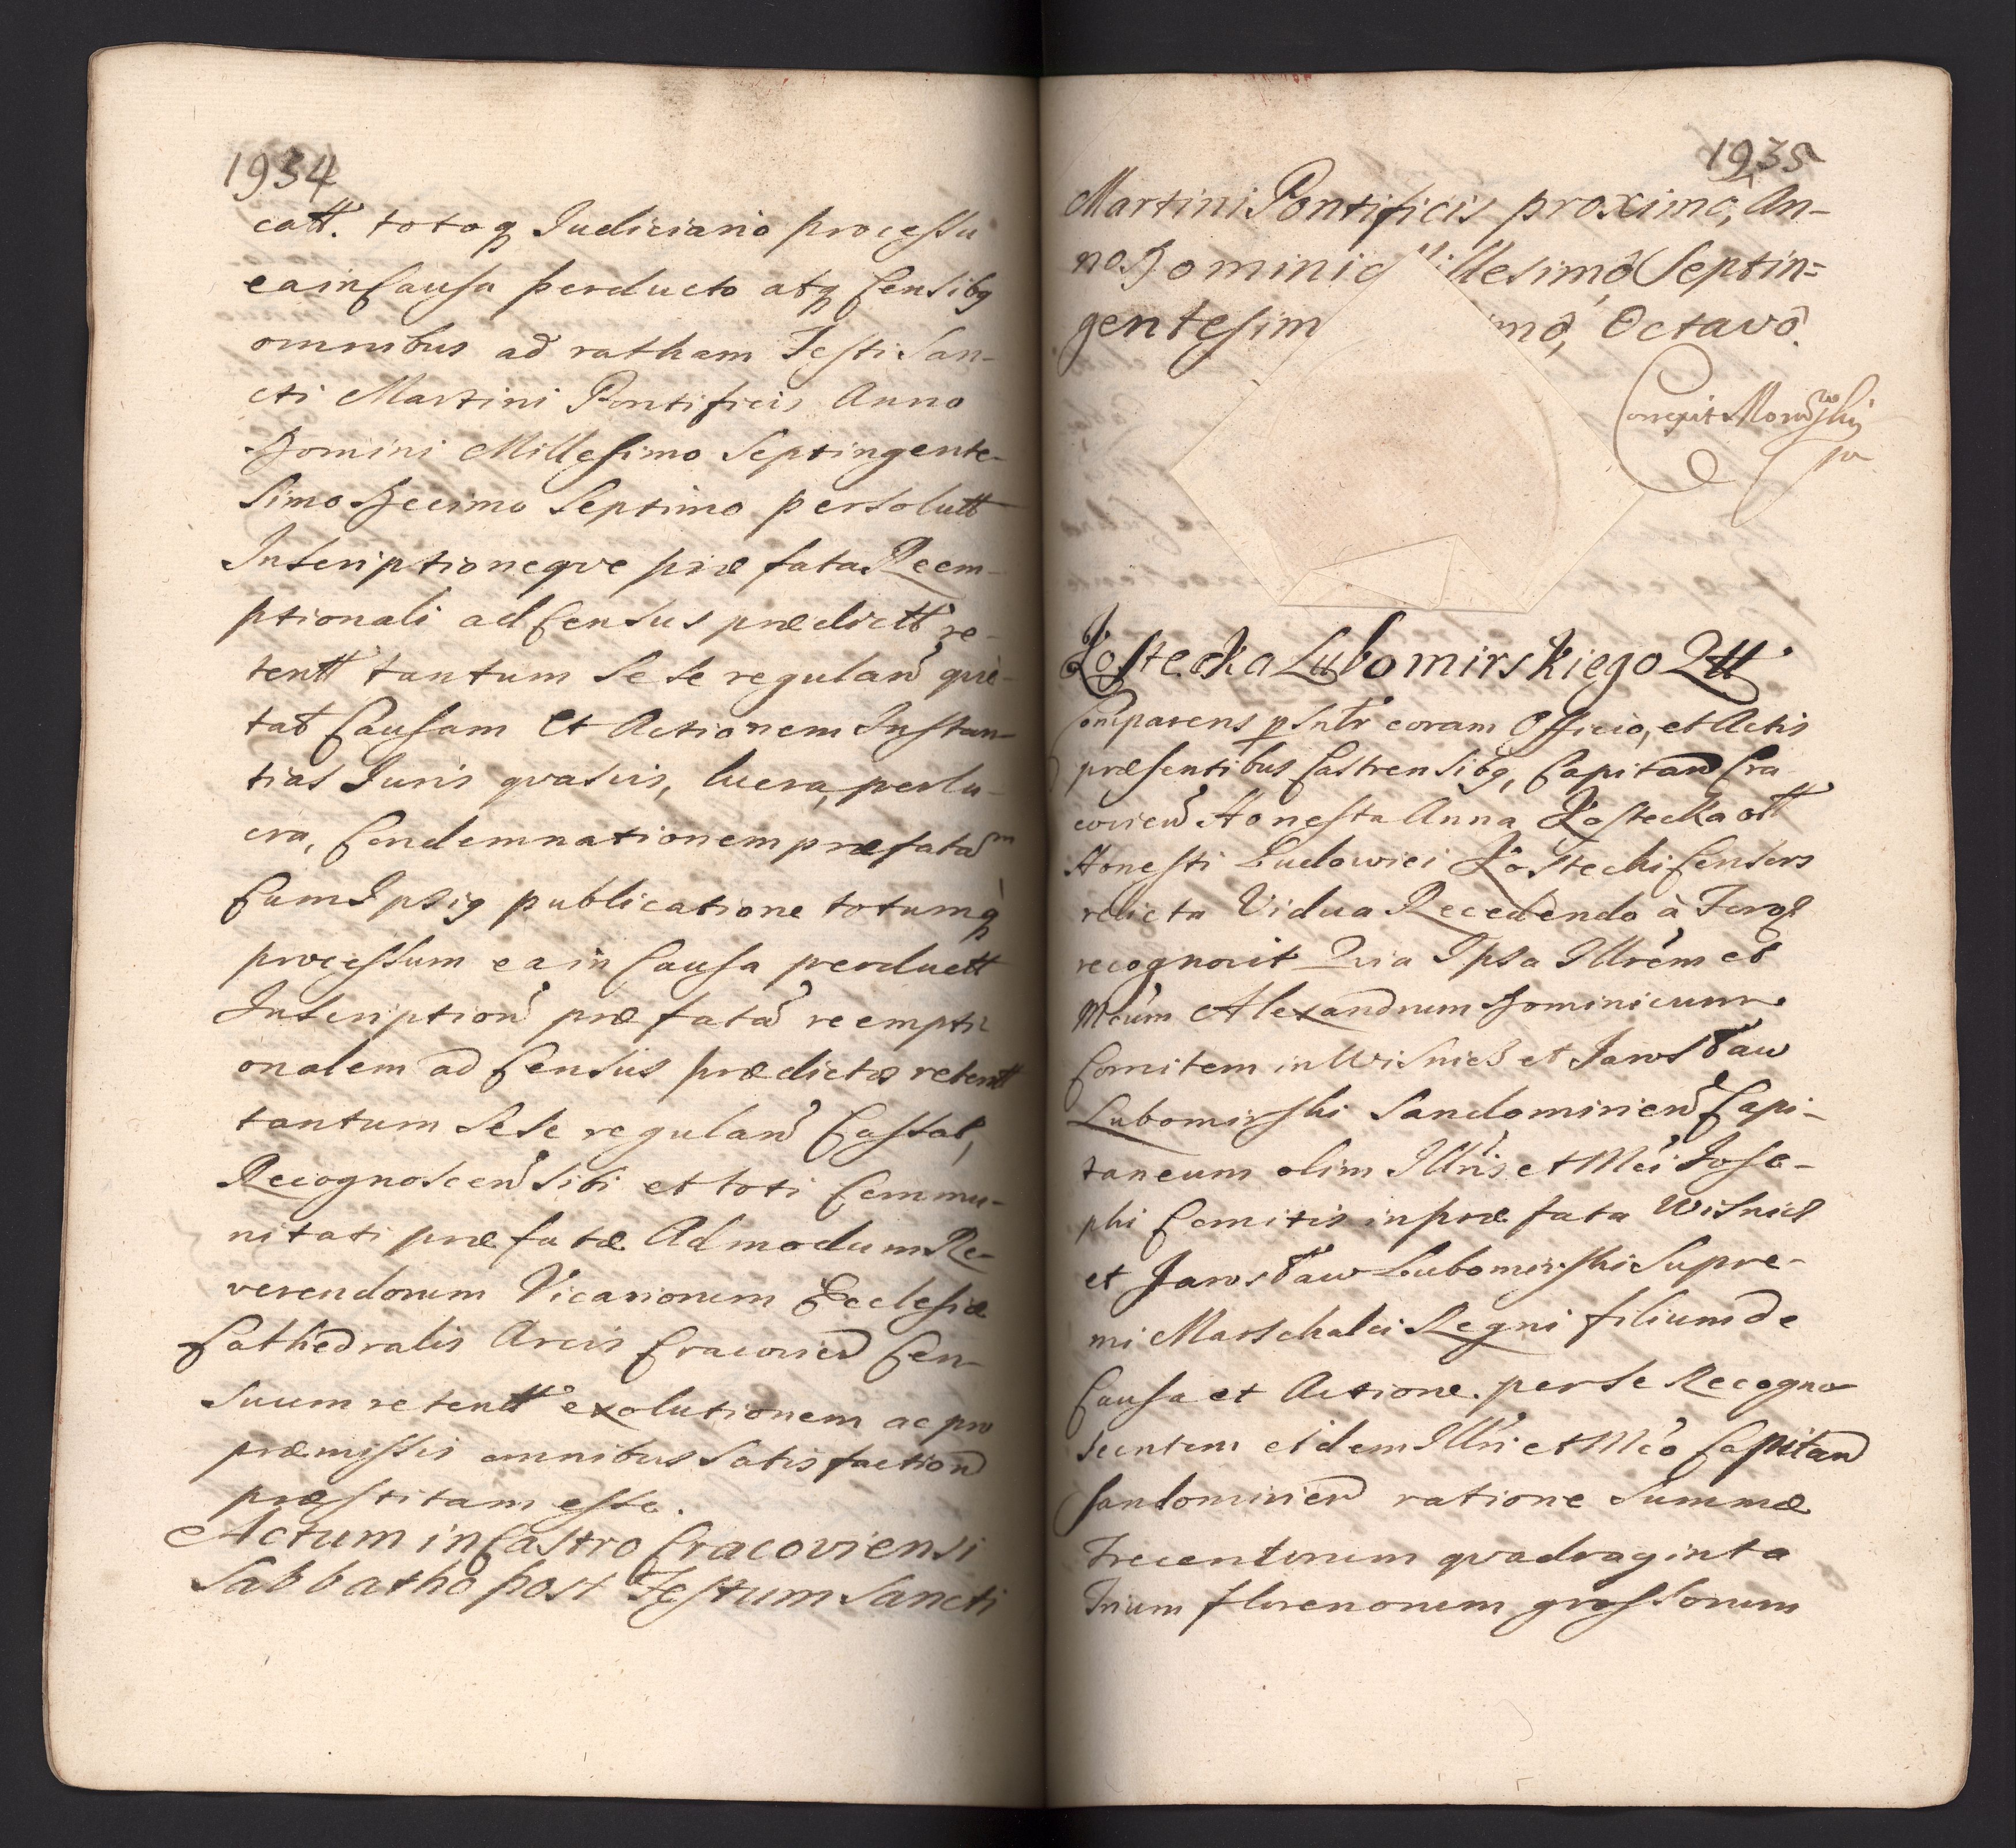 1934
catt. totoq Iudiciario processu
ea in Causa perducto atq Censibq
omnibus ad ratham Festi San-
cti Martini Pontificis Anno
Domini Millesimo Septingente-
simo Decimo Septimo persolutt
Inscriptioneqve præfata Reem-
ptionali ad Census prædictt re-
tentt tantum sese regulan quie-
tat Causam et Actionem Instan-
tias Iuris qvasvis, lucra, perlu-
cra, Condemnationem præfatam
Cum Ipsiq publicatione totumq
processum ea in Causa perductt
Inscription præfata reempti-
onalem ad Census prædictos retentt
tantum sese regulan Cassat,
Recognoscen sibi et toti Commu-
nitati præfatæ Admodum Re-
verendorum Vicariorum Ecclesiæ
Cathedralis Arcis Cracovien Cen-
suum retentt exolutionem ac pro
præmissis omnibus satisfaction
præstitam esse.
Actum in Castro Cracoviensi
Sabbatho post Festum Sancti
1935
Martini Pontificis proximo, An-
no Domini Millesimo Septin=
gentesim mo, Octavo.
Correxit
Łostecka Lubomirskiego Qtt
Comparens psntr coram Officio, et Actis
præsentibus Castrensibq, Capitan Cra
covien Honesta Anna Łostecka ott
Honesti Ludowici Łostecki Consors
relicta Vidua Recedendo à Foro
recognovit Qvia Ipsa Illrem et
Mcum Alexandrum Dominicum
Comitem in Wisnicz et Jarosław
Lubomirski Sandomirien Capi-
taneum olim Illris et Mci Jose-
phi Comitis in præfata Wisnicz
et Jarosław Lubomirski Supre-
mi Marschalci Regni filium de
Causa et Actione per se Recogno
scentem eidem Illri et Mco Capitan
Sandomirien ratione Summæ
Trecentorum qvadraginta
Trium florenorum grossorum